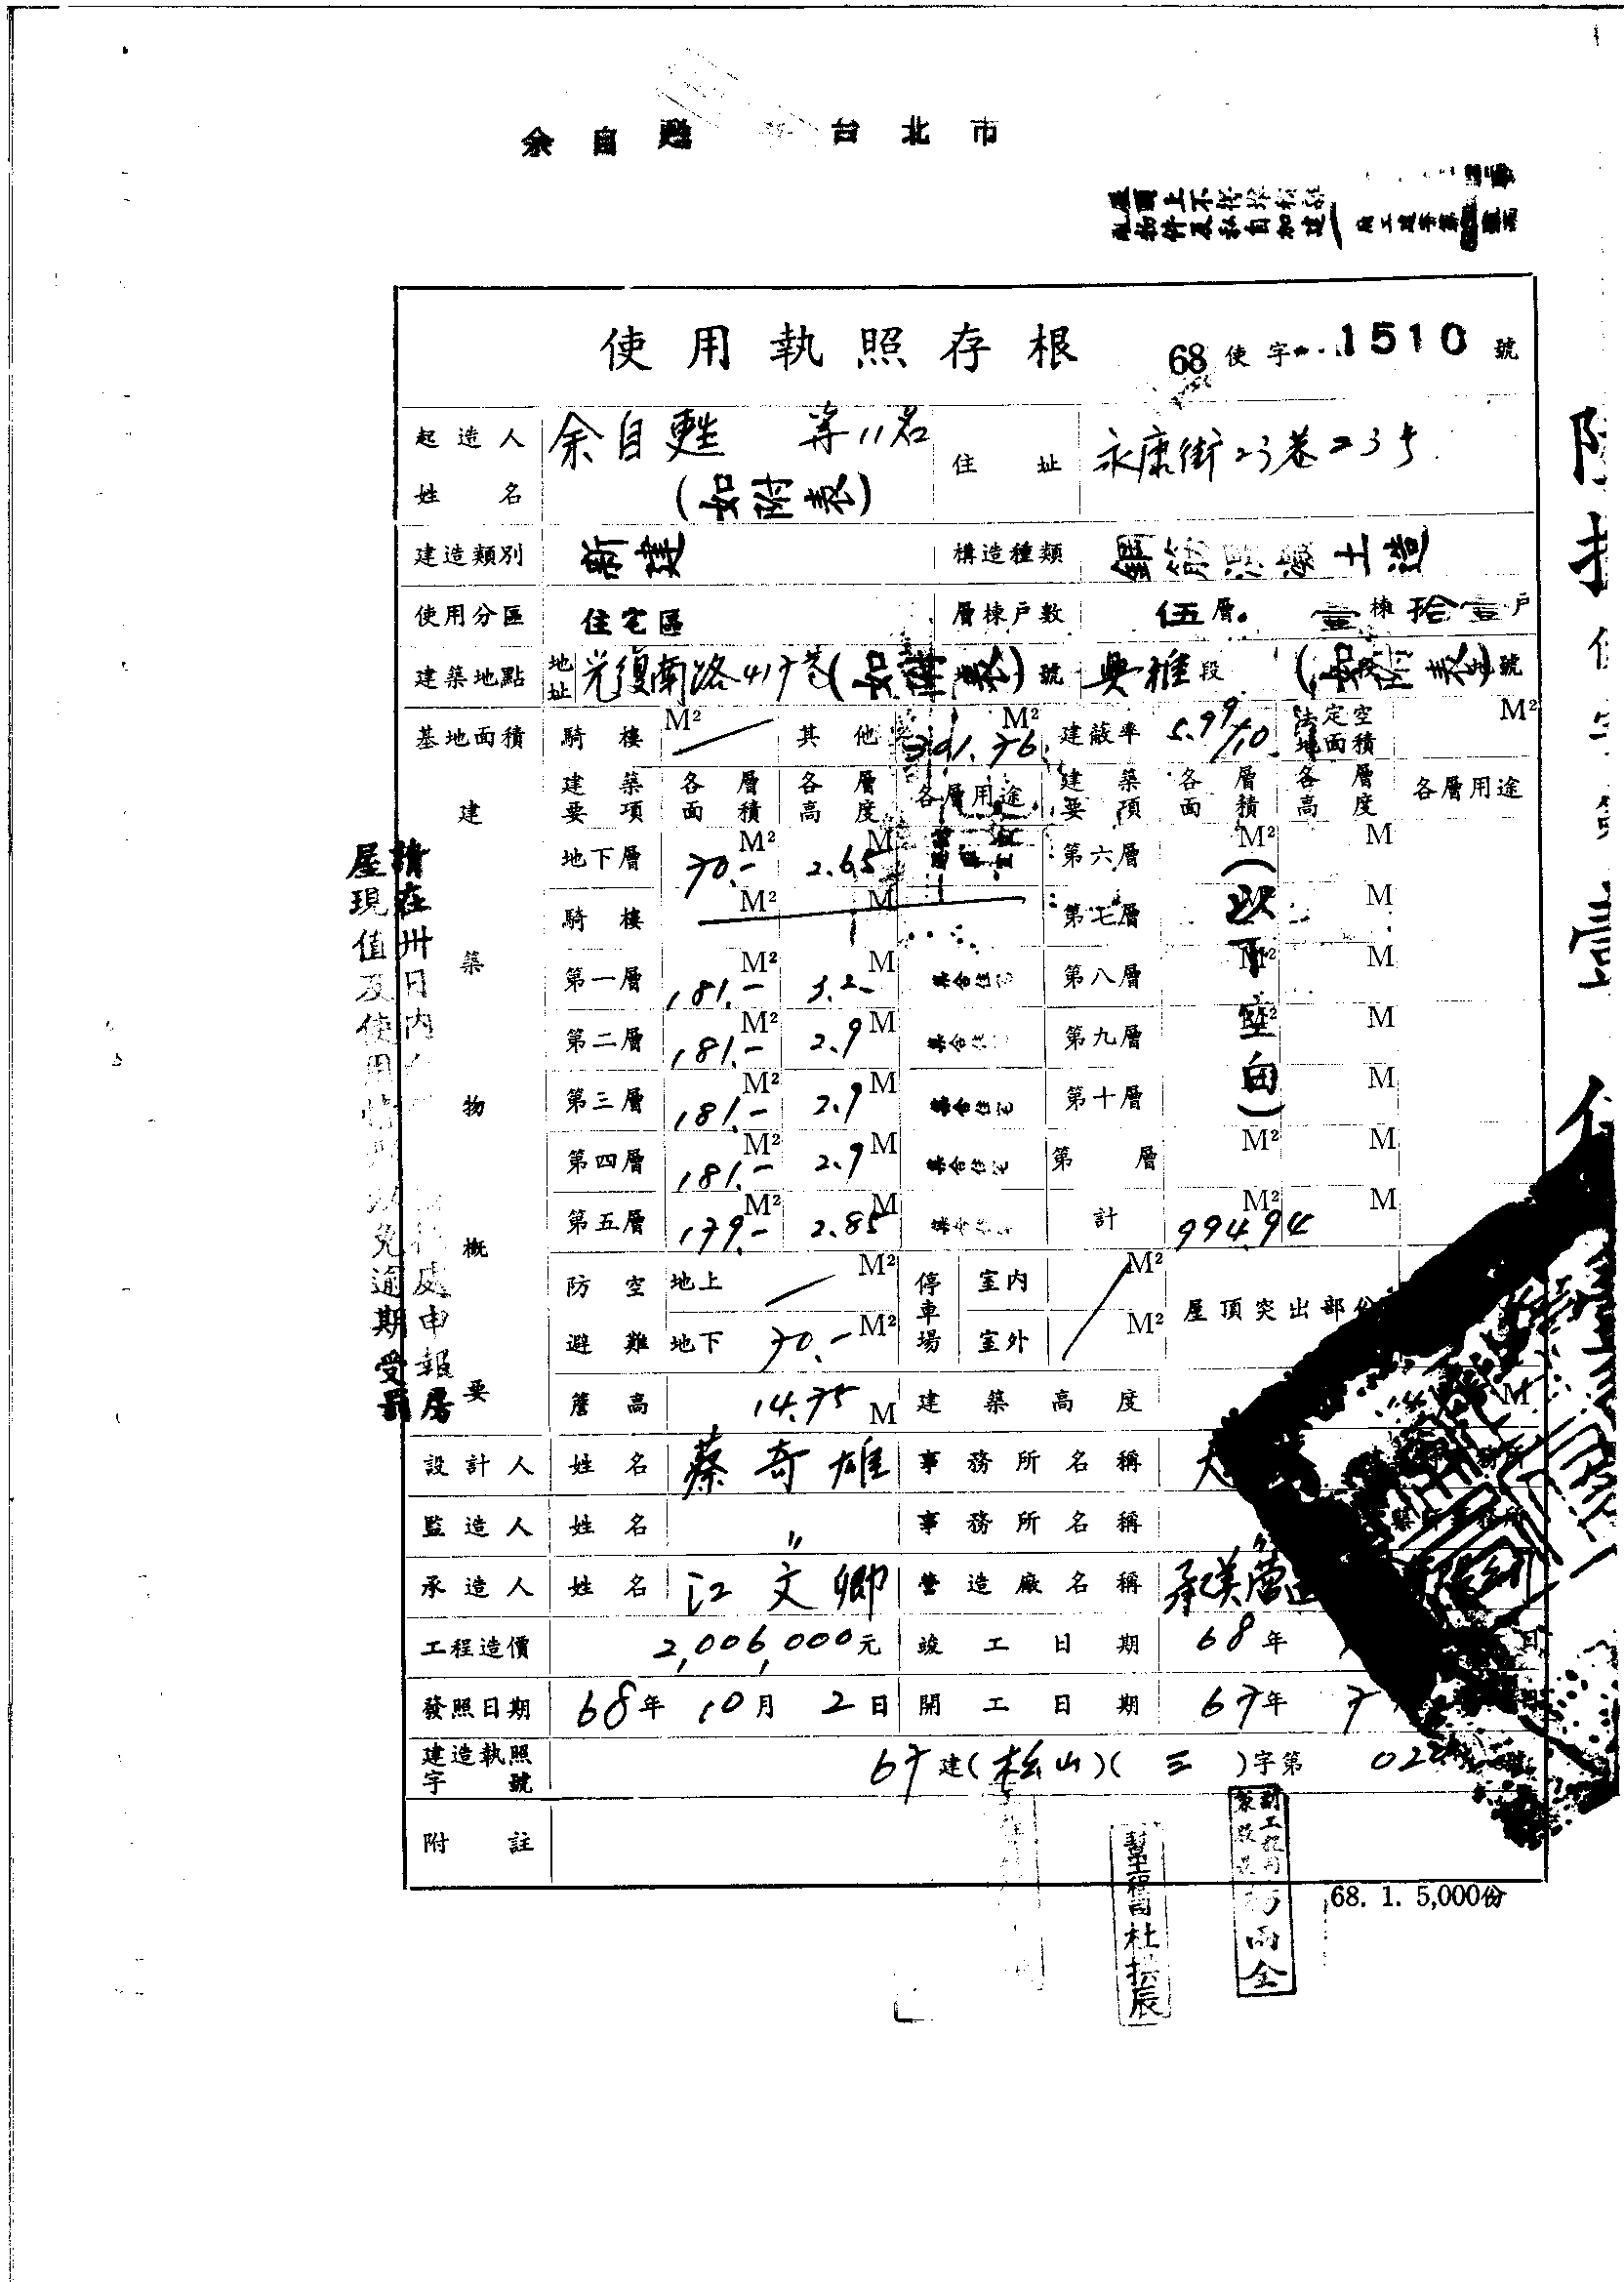 余自甦 台北市
使用執照存根 68使字 1510號
起造人姓名 余自甦 等11名 (如附表) 住址 永康街23巷23号
建造類別 新建 構造種類 鋼筋混凝土造
使用分區 住宅區 層棟戶數 伍層 壹棟拾壹戶
建築地點 地址 光復南路417巷 號 興雅段 (如附表)地號
基地面積 騎樓 M² 其他 301.76 M² 建蔽率 5.99/10 法定空地面積 M²
建築物概要
建築要項 各層面積 各層高度 各層用途 建築要項 各層面積 各層高度 各層用途
地下層 70.- M² 2.65 M 第六層 M² M
騎樓 M² M 第七層 M
第一層 181.- M² 3.2- M 第八層 M² M
第二層 181.- M² 2.9 M 第九層 M² M
第三層 181.- M² 2.9 M 第十層 M
第四層 181.- M² 2.9 M 第 層 M² M
第五層 179.- M² 2.85 M 計 994.94 M² M
(以下空白)
防空避難 地上 M² 停車場 室內 M² 屋頂突出部份
地下 70.- M² 室外 M²
簷高 14.75 M 建築高度 M
設計人 姓名 蔡奇雄 事務所名稱
監造人 姓名 〃 事務所名稱
承造人 姓名 江文卿 營造廠名稱 承美營造
工程造價 2,006,000元 竣工日期 68年 日
發照日期 68年10月2日 開工日期 67年7
建造執照字號 67建(松山)(三)字第 022
附註
68. 1. 5,000份
請在卅日內 處申報房
屋現值及使用情形以免逾期受罰